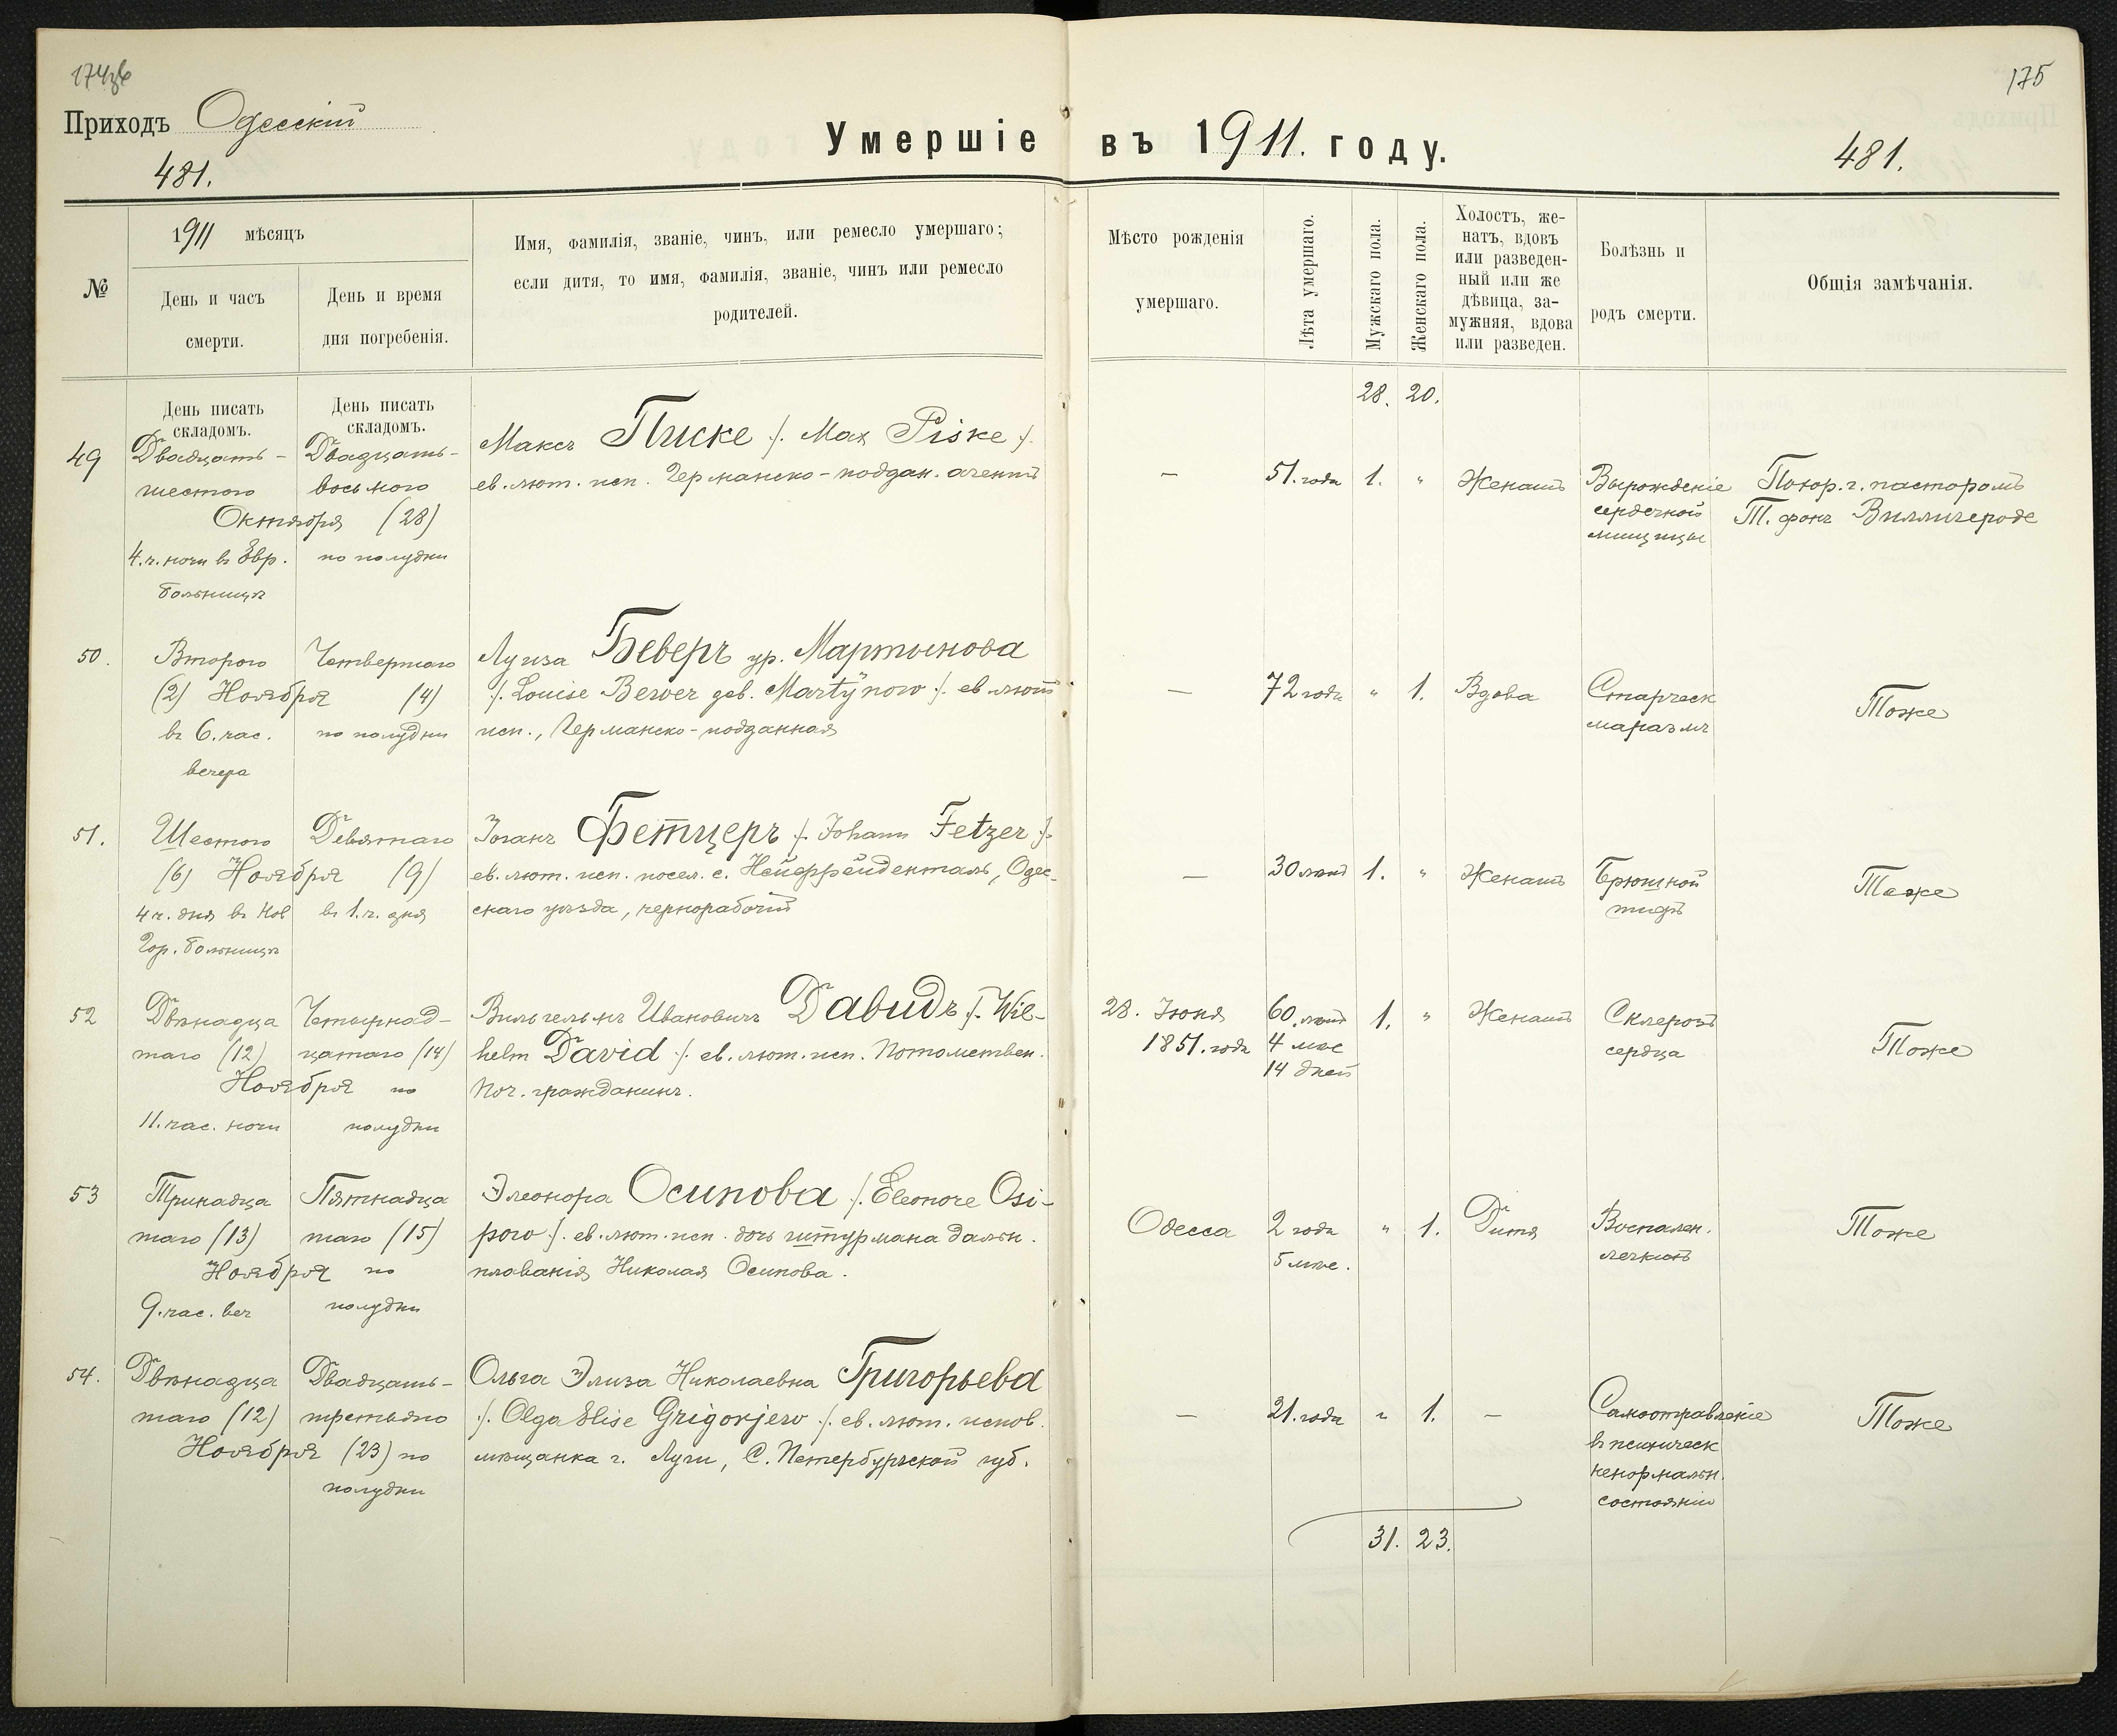 174 об
175
Приходъ Одесскій
Умершіе въ 1911. году.
481.
481.
№
1911 мѣсяцъ
День и часъ смерти.
День и время дня погребенія.
Имя, фамилія, званіе, чинъ, или ремесло умершаго;
если дитя, то имя, фамилія, званіе, чинъ или ремесло
родителей.
Мѣсто рожденія
умершаго.
Лѣта умершаго.
Мужскаго пола.
Женскаго пола.
Холостъ, же-
натъ, вдовъ
или разведен-
ный или же
дѣвица, за-
мужняя, вдова
или разведен.
Болѣзнь и
родъ смерти.
Общія замѣчанія.
День писать
складомъ.
День писать
складомъ.
28. 20.
49
Двадцать-
шестого
Двадцать-
восьмого
Октября (28)
4.ч. ночи въ Евр.
больницѣ
по полудни
Максъ Писке /. Max Piske /.
ев. лют. исп. Германско-поддан. агентъ
—
51. года
1.
"
Женатъ
Вырожденіе
сердечной
мышцы
Похор. г. пасторомъ
Т. фонъ Виллигероде
50.
Второго
(2) Ноября (4)
въ 6. час.
вечера
Четвертаго
по полудни
Луиза Беверъ ур. Мартынова
/. Louise Bewer geb. Martÿnow /. ев лют
исп., Германско-подданная
—
72 года
"
1.
Вдова
Старческ
маразмъ
Тоже
51.
Шестого
(6) Ноября (9)
4 ч. дня въ Нов
Гор. больницѣ
Девятаго
въ 1. ч. дня
Іоганъ Фетцеръ /. Johann Fetzer /.
ев. лют. исп. посел. с. Нейффейденталь, Одес-
скаго уѣзда, чернорабочій
—
30 лѣтъ
1.
"
Женатъ
Брюшной
тифъ
Тоже
52
Двѣнадца
таго (12)
Четырнад-
цатаго (14)
Ноября по
11. час. ночи
полудни
Вильгельмъ Ивановичъ Давидъ /. Wil-
helm David /. ев. лют. исп. Потомствен.
Поч. гражданинъ.
28. Іюня
1851. года
60. лѣтъ
4 мѣс
14 дней
1.
"
Женатъ
Склерозъ
сердца
Тоже
53
Тринадца
таго (13)
Пятнадца
таго (15)
Ноября по
9. час. веч
полудни
Элеонора Осипова /. Eleonore Osi-
pow /. ев. лют. исп. дочь штурмана дальн.
плаванія Николая Осипова.
Одесса
2 года
5 мѣс.
"
1.
Дитя
Воспален.
легкихъ
Тоже
54.
Двѣнадца
таго (12)
Двадцать-
третьяго
Ноября (23) по
полудни
Ольга Элиза Николаевна Григорьева
/. Olga Elise Grigorjew /. ев. лют. испов.
мѣщанка г. Луги, С. Петербургской губ.
—
21. года
"
1.
—
Самоотравленіе
въ психическ
ненормальн.
состояніи
Тоже
31. 23.